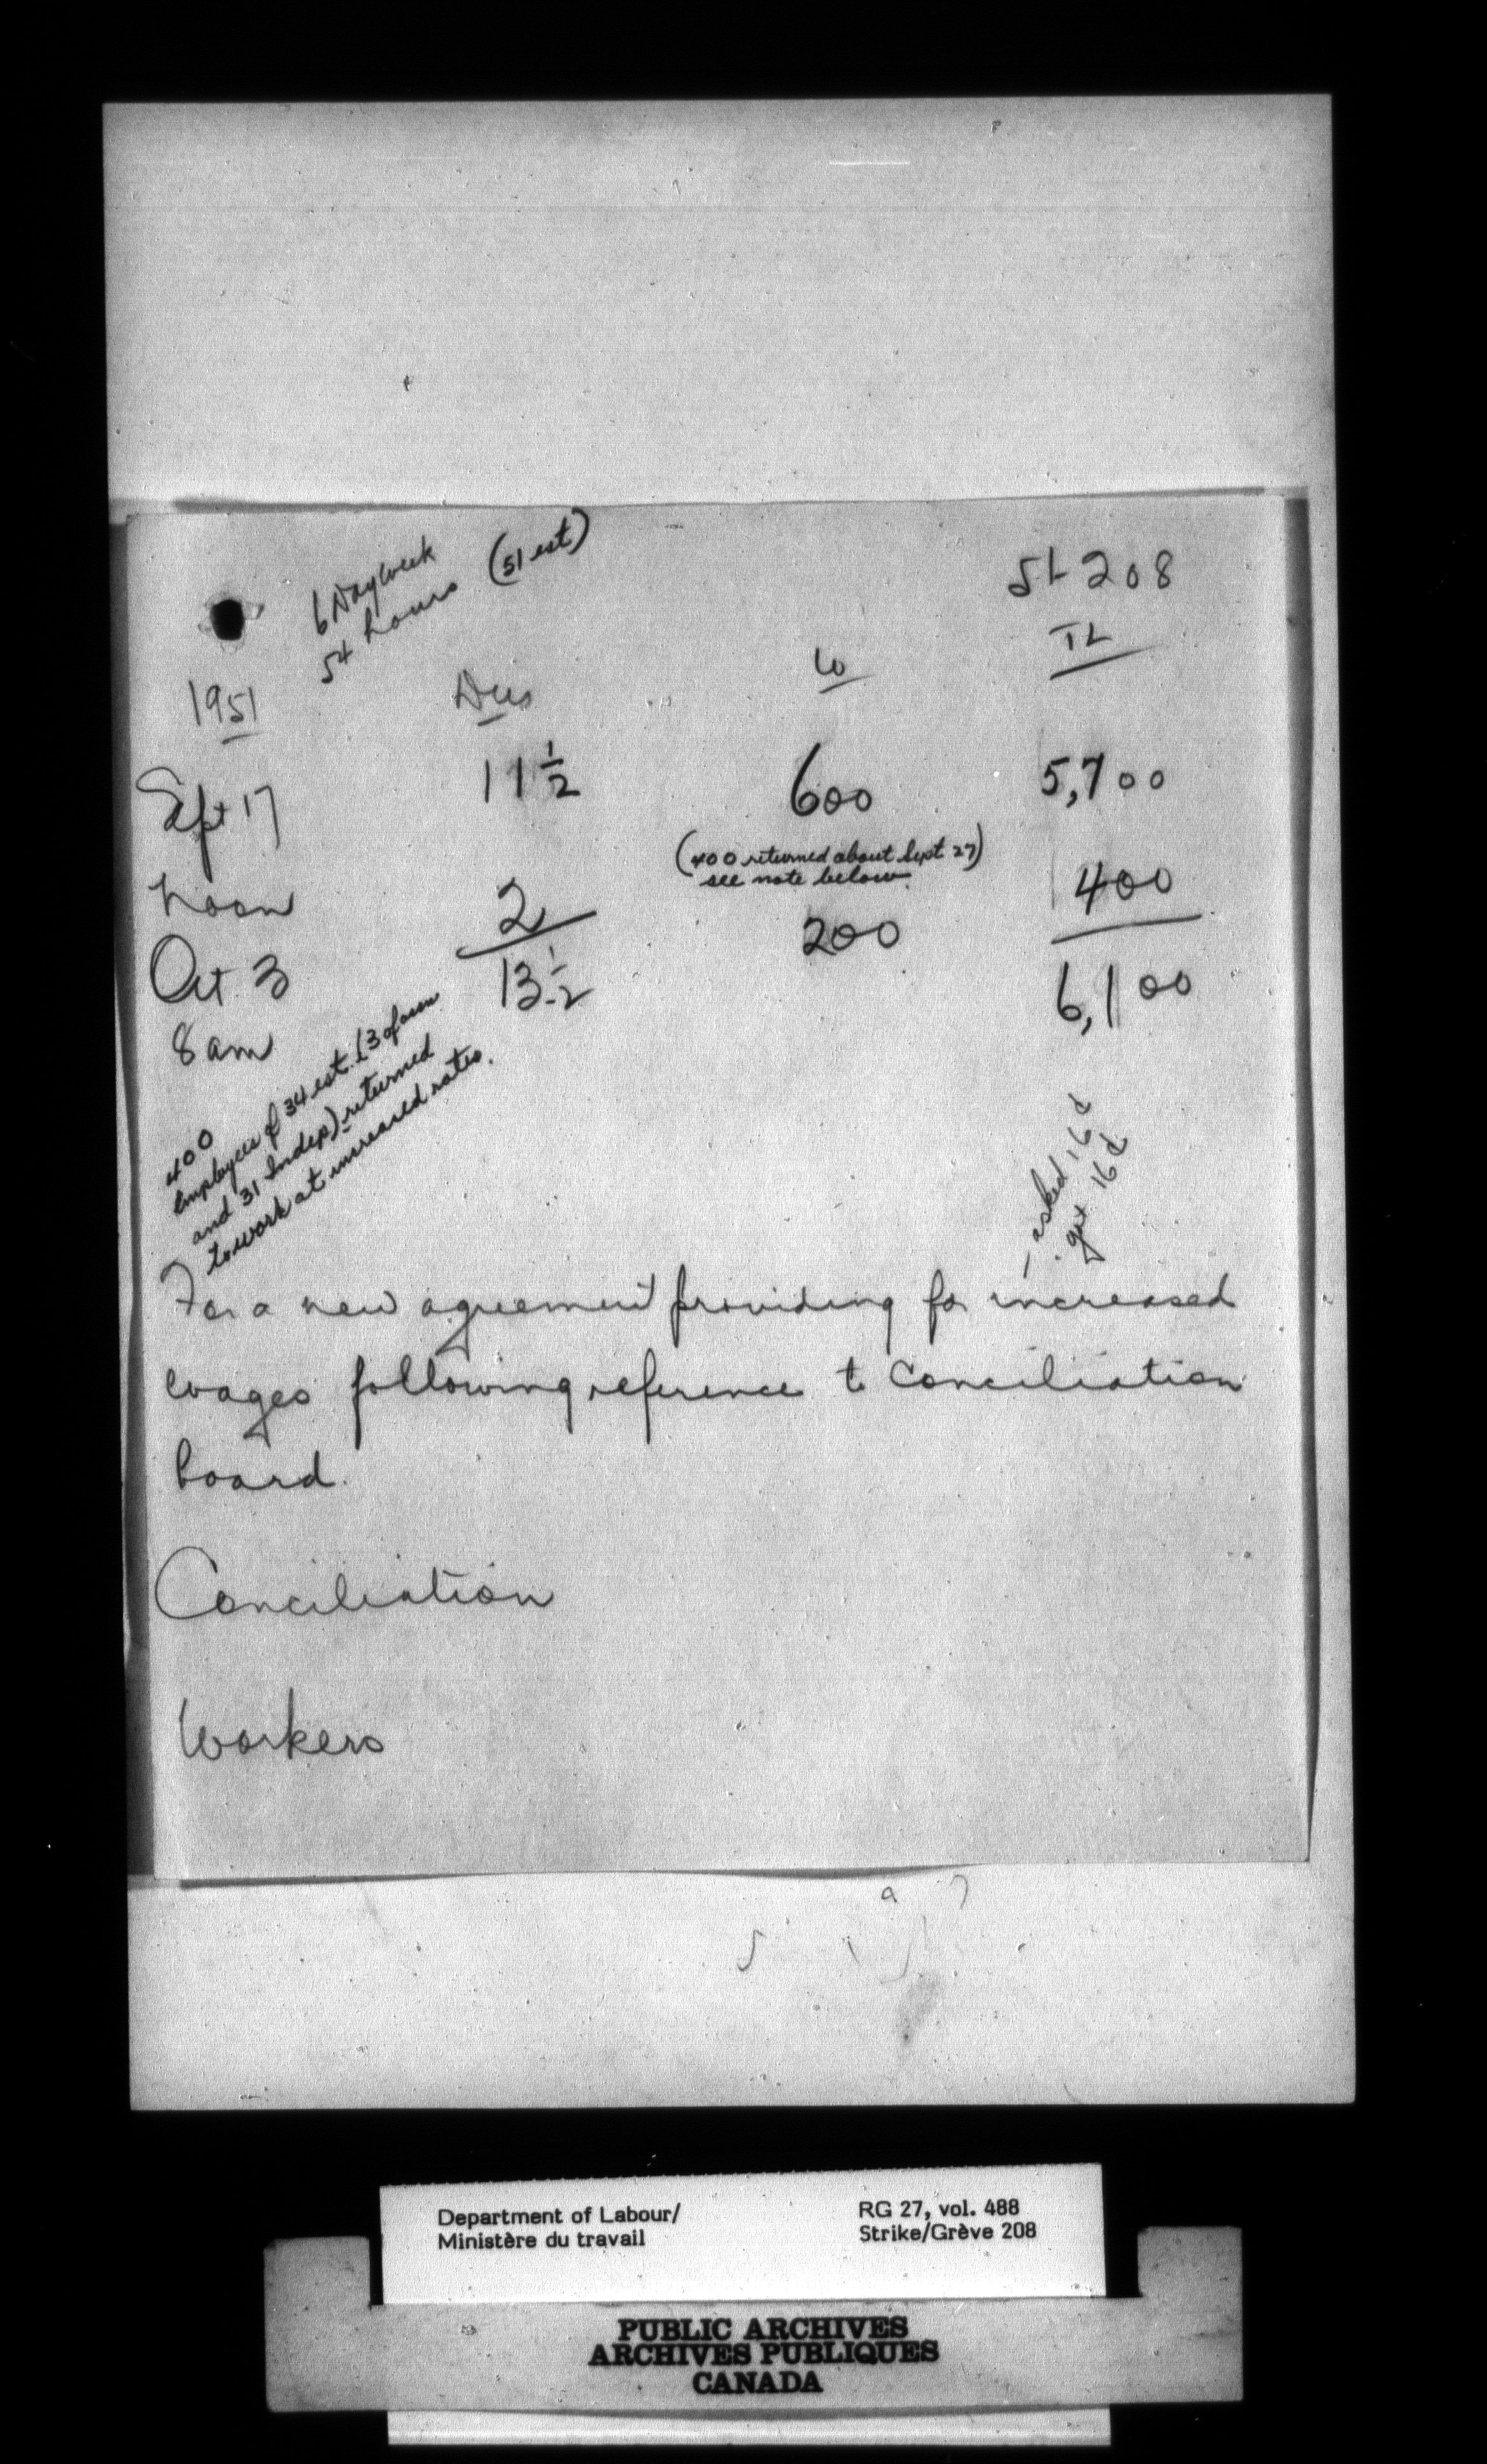 6 Day week
54 hours (51 est)
51-208
1951
W
TL
Sept 17
11 1/2
600
5,700
(400 returned about Sept 27)
see note below.
noon
2
200
400
Oct. 3
13 1/2
6,100
8 am
400
employees of 34 est. (3 of assn
and 31 Indep) returned
to work at increased rates.
asked 16¢
get 16¢
For a new agreement providing for increased
wages following reference to conciliation
board.
Conciliation
Workers
Department of Labour/
Ministère du travail
RG 27, vol. 488
Strike/Grève 208
PUBLIC ARCHIVES
ARCHIVES PUBLIQUES
CANADA